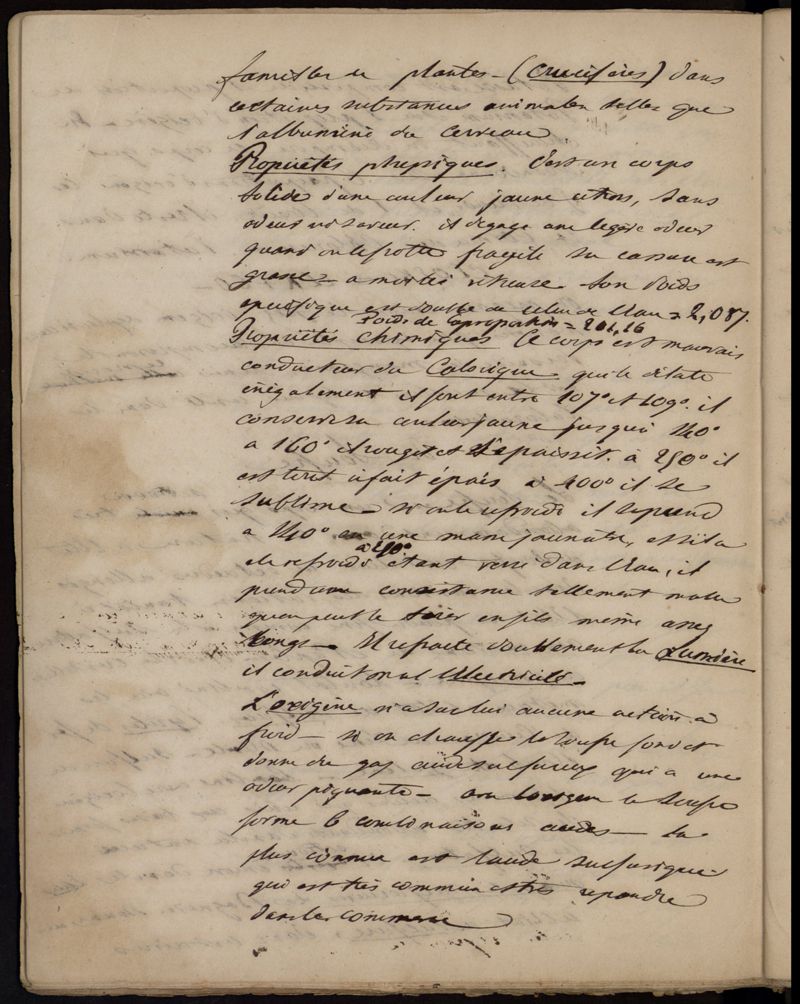 familles de plantes - (crucifères) dans
certaines substances animales telles que
l'albumine du cerveau
Propriétés physiques. C'est un corps
solide d'une couleur jaune citron, sans
odeur ni saveur. il dégage une légère odeur
quand on le frotte fragile sa cassure est
son poids
spécifique est double de celui de l'eau = 2,087.
Poids de proportion = 201,16
Propriétés chimiques Ce corps est mauvais
conducteur du Calorique qui le dilate
inégalement il fond entre 107° et 109°. il
conserve sa couleur jaune jusqu'à 140°
a 160° il rougit et s'épaissit. à 250° il
est tout à fait épais à 400° il se
sublime - si on le refroidi il reprend
a 140° une masse jaunatre, et si
à 250°
étant versé dans l'eau, il
prend une consistance tellement molle
qu'on peut le tirer en fils même assez
longs - Il refracte doublement la Lumière
il conduit mal l'électricité -
L'oxigène n'a sur lui aucune action à
froid - si on chauffe le soufre fond et
donne du gaz acide sulfureux qui a une
odeur piquante - le soufre
forme 6 combinaisons acides - la
plus connue est l'acide sulfurique
qui est très commun et très repandu
dans le commerce